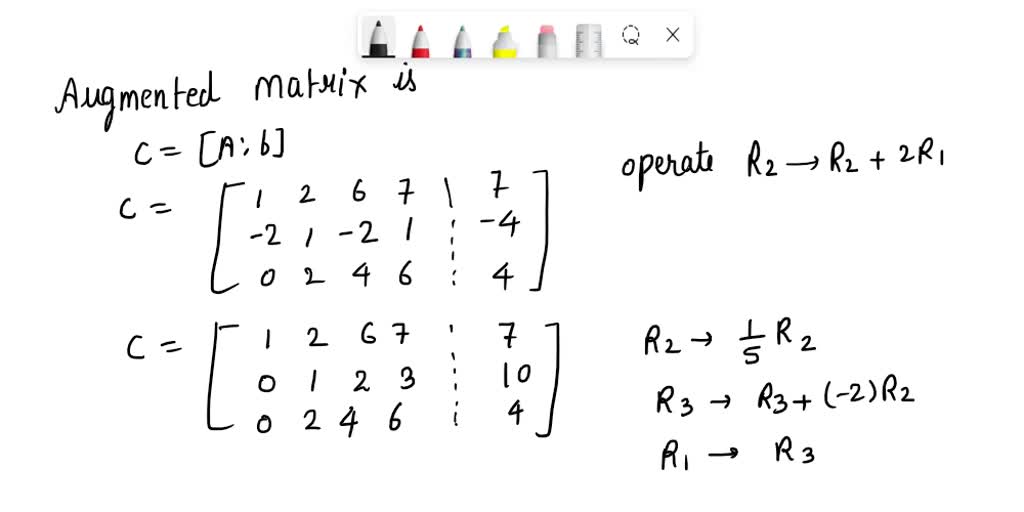 Augmented matrix is
C = [A:b]
operate R2 → R2 + 2R1
C = [ 1 2 6 7 | 7
-2 1 -2 1 ⋮ -4
0 2 4 6 ⋮ 4 ]
C = [ 1 2 6 7 ⋮ 7
0 1 2 3 ⋮ 10
0 2 4 6 ⋮ 4 ]
R2 → 1/5 R2
R3 → R3 + (-2)R2
R1 → R3